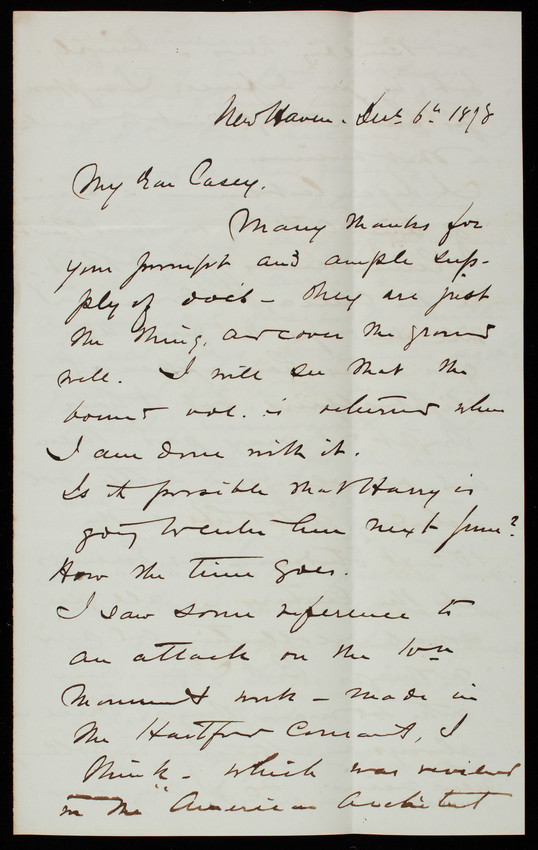 New Haven. Dec 6th 1878
My dear Casey.
Many thanks for
your prompt and ample sup-
ply of doc's - They are just
the thing, and cover the ground
well. I will see that the
bound vol. is returned when
I am done with it.
Is it possible that Harry is
going to enter here next June?
How the time goes.
I saw some reference to
an attack on the
Monument work - made in
the Hartford Courant, I
think - which was reviewed
in the "American Architect